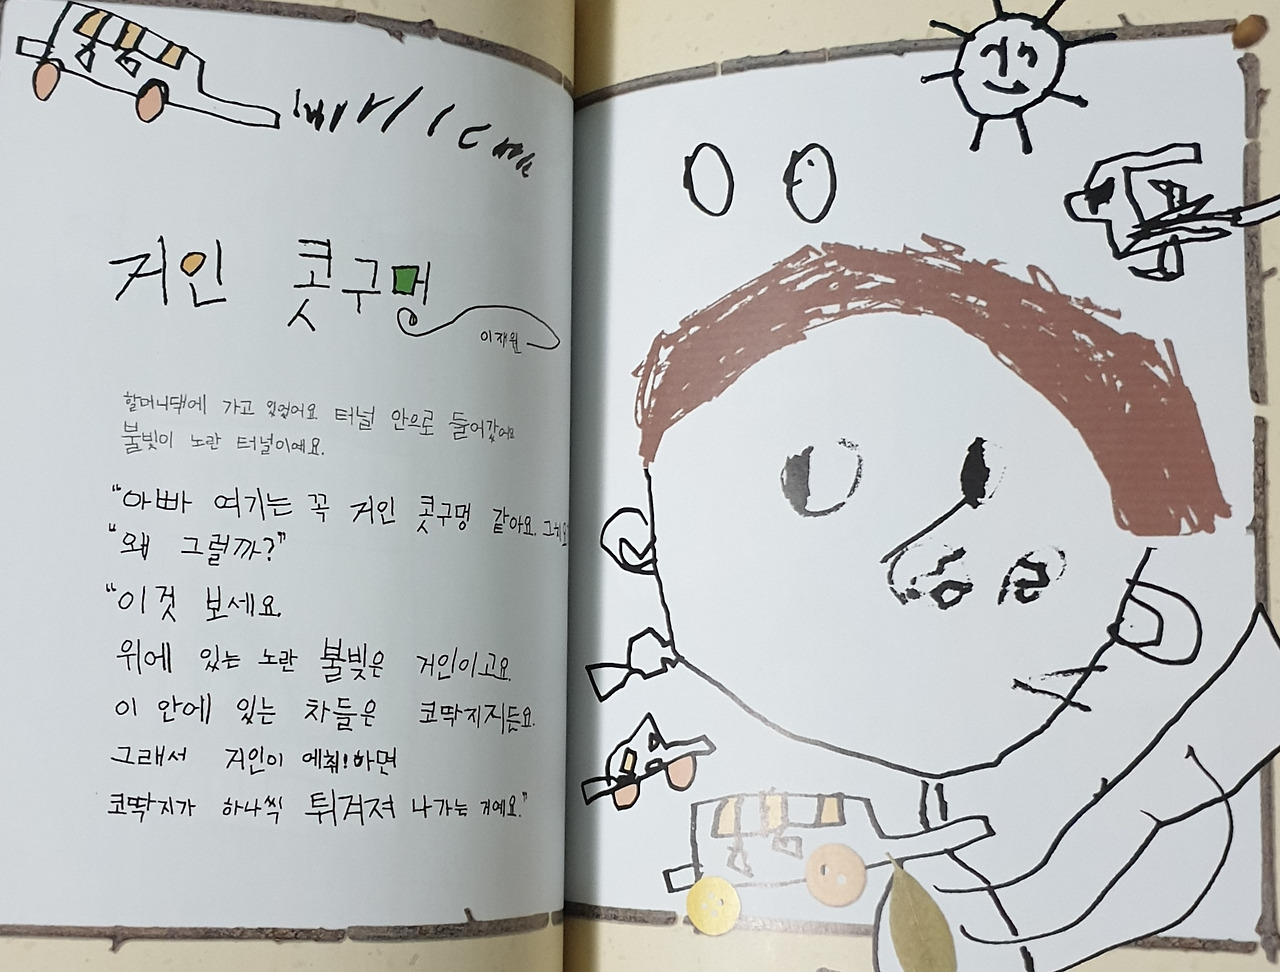 거인 콧구멍
이재원
할머니댁에 가고 있었어요 터널 안으로 들어갔어요
불빛이 노란 터널이예요.
“아빠 여기는 꼭 거인 콧구멍 같아요. 그치요
“왜 그럴까?”
“이것 보세요.
위에 있는 노란 불빛은 거인이고요.
이 안에 있는 차들은 코딱지지든요.
그래서 거인이 에취! 하면
코딱지가 하나씩 튀겨져 나가는 거예요.”